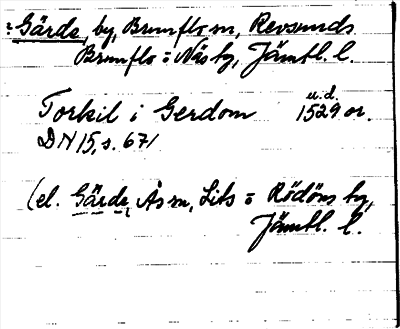 : Gärde, by, Brunflo sn, Revsunds
Brunflo o Näs tg, Jämtl. l.
u.d.
Torkil i Gerdom 1529 or.
DN 15, s. 671
(el. Gärde, Ås sn, Lits o Rödöns tg,
Jämtl. l.